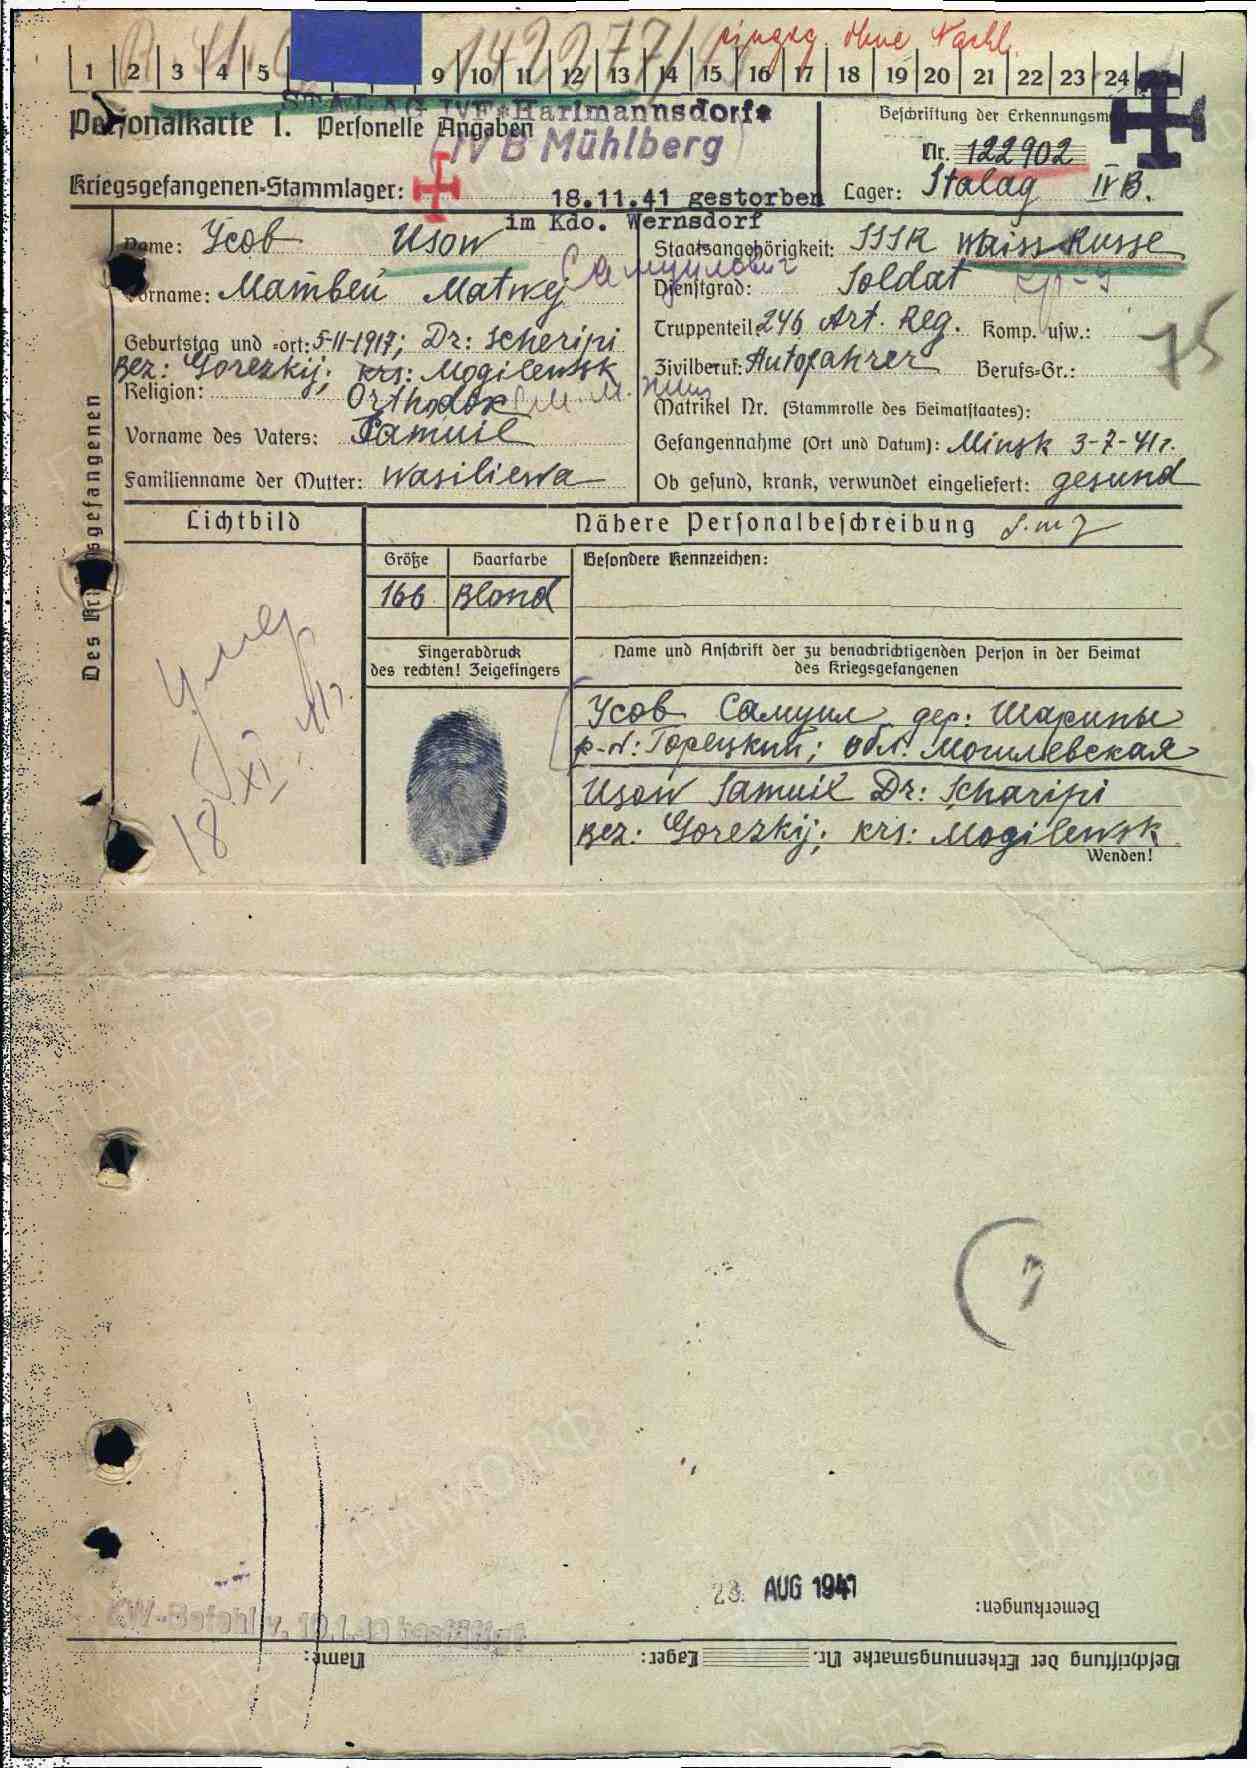 142277
eingeg. ohne Nachl.
1 2 3 4 5 9 10 11 12 13 14 15 16 17 18 19 20 21 22 23 24
STALAG IVF*Hartmannsdorf*
Personalkarte I. Personelle Angaben
Beschriftung der Erkennungsm
IV B Mühlberg
Nr. 122902
Kriegsgefangenen-Stammlager:
18.11.41 gestorben
Lager: Stalag IVB.
im Kdo. Wernsdorf
Des Kriegsgefangenen
Name: Усов Usow
Staatsangehörigkeit: SSSR Waiss Russe
Самуилович
Vorname: Матвей Matwej
Dienstgrad: Soldat
Geburtstag und =ort: 5-11-1917; Dr: Scheripi
Truppenteil: 246 Art. Reg. Komp. usw.:
75
Bez: Gorezkij; krs: Mogilewsk
Zivilberuf: Autofahrer Berufs-Gr.:
Religion: Orthodox
Matrikel Nr. (Stammrolle des Heimatstaates):
Vorname des Vaters: Samuil
Gefangennahme (Ort und Datum): Minsk 3-7-41г.
Familienname der Mutter: Wasiliewa
Ob gesund, krank, verwundet eingeliefert: gesund
Lichtbild
Nähere Personalbeschreibung
Größe Haarfarbe Besondere Kennzeichen:
166 Blond
Fingerabdruck
des rechten! Zeigefingers
Name und Anschrift der zu benachrichtigenden Person in der Heimat
des Kriegsgefangenen
умер
18.XI.41г.
Усов Самуил дер: Шарипы
р-н: Горецкий; обл: Могилевская
Usow Samuil Dr: Scharipi
Bez: Gorezkij; krs: Mogilewsk
Wenden!
23. AUG 1941
Bemerkungen:
KW-Befehl v. 10.1.
Beschriftung der Erkennungsmarke Nr. Lager: Name: